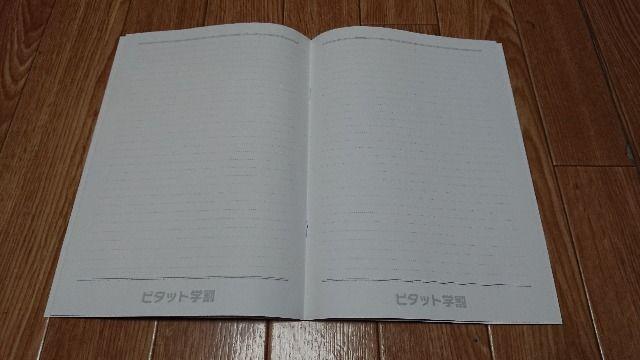 ピタット学割
ピタット学割